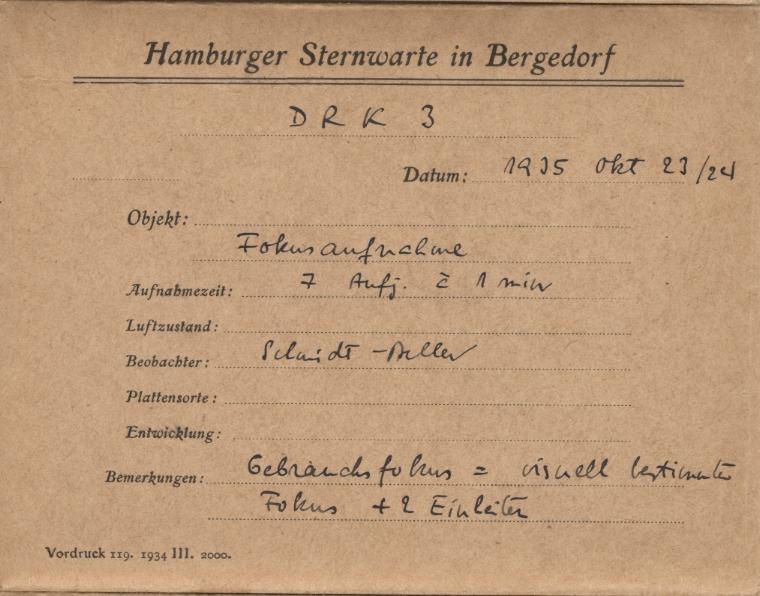 Hamburger Sternwarte in Bergedorf
DRK 3
Datum: 1935 Okt 23/24
Objekt:
Fokusaufnahme
Aufnahmezeit: 7 Aufg. à 1 min
Luftzustand:
Beobachter: Schmidt -
Plattensorte:
Entwicklung:
Bemerkungen: Gebrauchsfokus = visuell bestimmter
Fokus + 2 Einheiten
Vordruck 119. 1934 III. 2000.